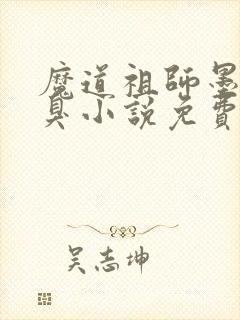 魔道祖師墨
臭小說免費
吴志坤